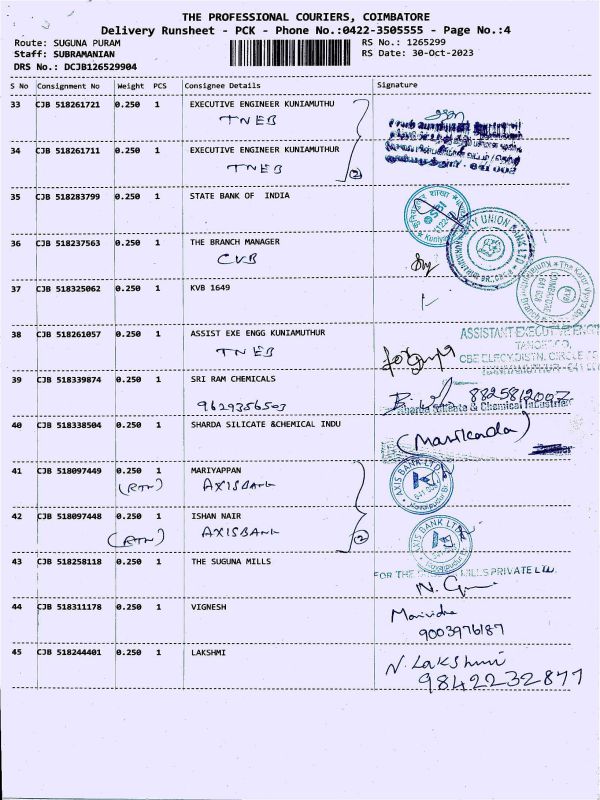 THE PROFESSIONAL COURIERS, COIMBATORE
Delivery Runsheet - PCK - Phone No.:0422-3505555 - Page No.:4
Route: SUGUNA PURAM RS No.: 1265299
Staff: SUBRAMANIAN RS Date: 30-Oct-2023
DRS No.: DCJB126529904
S No Consignment No Weight PCS Consignee Details Signature
33 CJB 518261721 0.250 1 EXECUTIVE ENGINEER KUNIAMUTHU
TNEB
34 CJB 518261711 0.250 1 EXECUTIVE ENGINEER KUNIAMUTHUR
TNEB 2
35 CJB 518283799 0.250 1 STATE BANK OF INDIA
SBI
36 CJB 518237563 0.250 1 THE BRANCH MANAGER
CVB
UNION BANK LTD
37 CJB 518325062 0.250 1 KVB 1649
KVB
38 CJB 518261057 0.250 1 ASSIST EXE ENGG KUNIAMUTHUR
TNEB
ASSISTANT EXECUTIVE
39 CJB 518339874 0.250 1 SRI RAM CHEMICALS
9629356503
8825812007
40 CJB 518338504 0.250 1 SHARDA SILICATE &CHEMICAL INDU
& Chemical Industries
41 CJB 518097449 0.250 1 MARIYAPPAN
(RTN) AXISBANK
AXIS BANK LTD
42 CJB 518097448 0.250 1 ISHAN NAIR
(RTN) AXISBANK 2
AXIS BANK LTD
43 CJB 518258118 0.250 1 THE SUGUNA MILLS
FOR THE MILLS PRIVATE LTD.
44 CJB 518311178 0.250 1 VIGNESH
9003976187
45 CJB 518244401 0.250 1 LAKSHMI
N. Lakshmi
9842232877